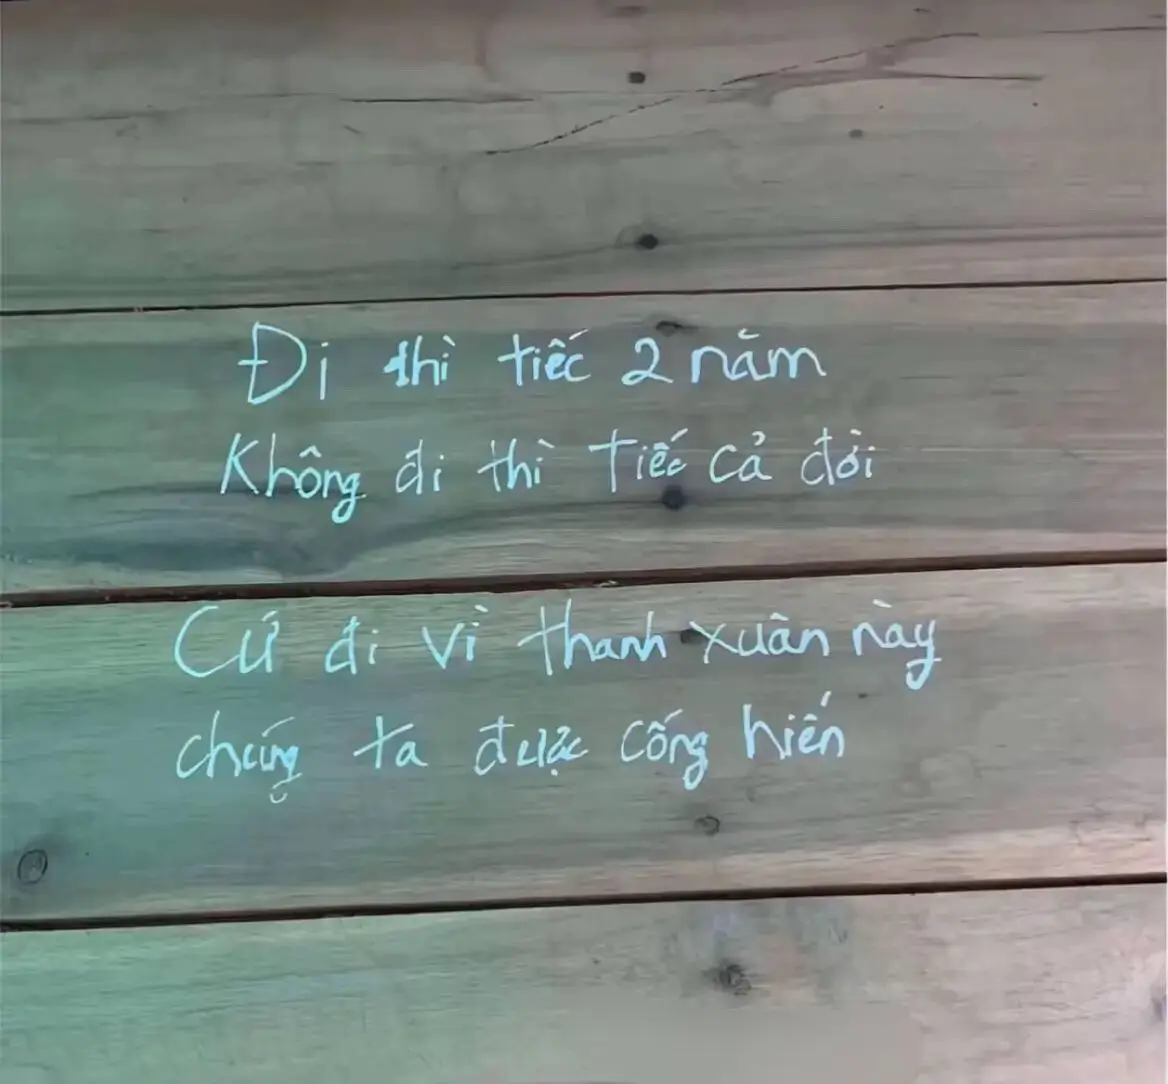 Đi thì tiếc 2 năm
Không đi thì tiếc cả đời
Cứ đi vì thanh xuân này
chúng ta được cống hiến